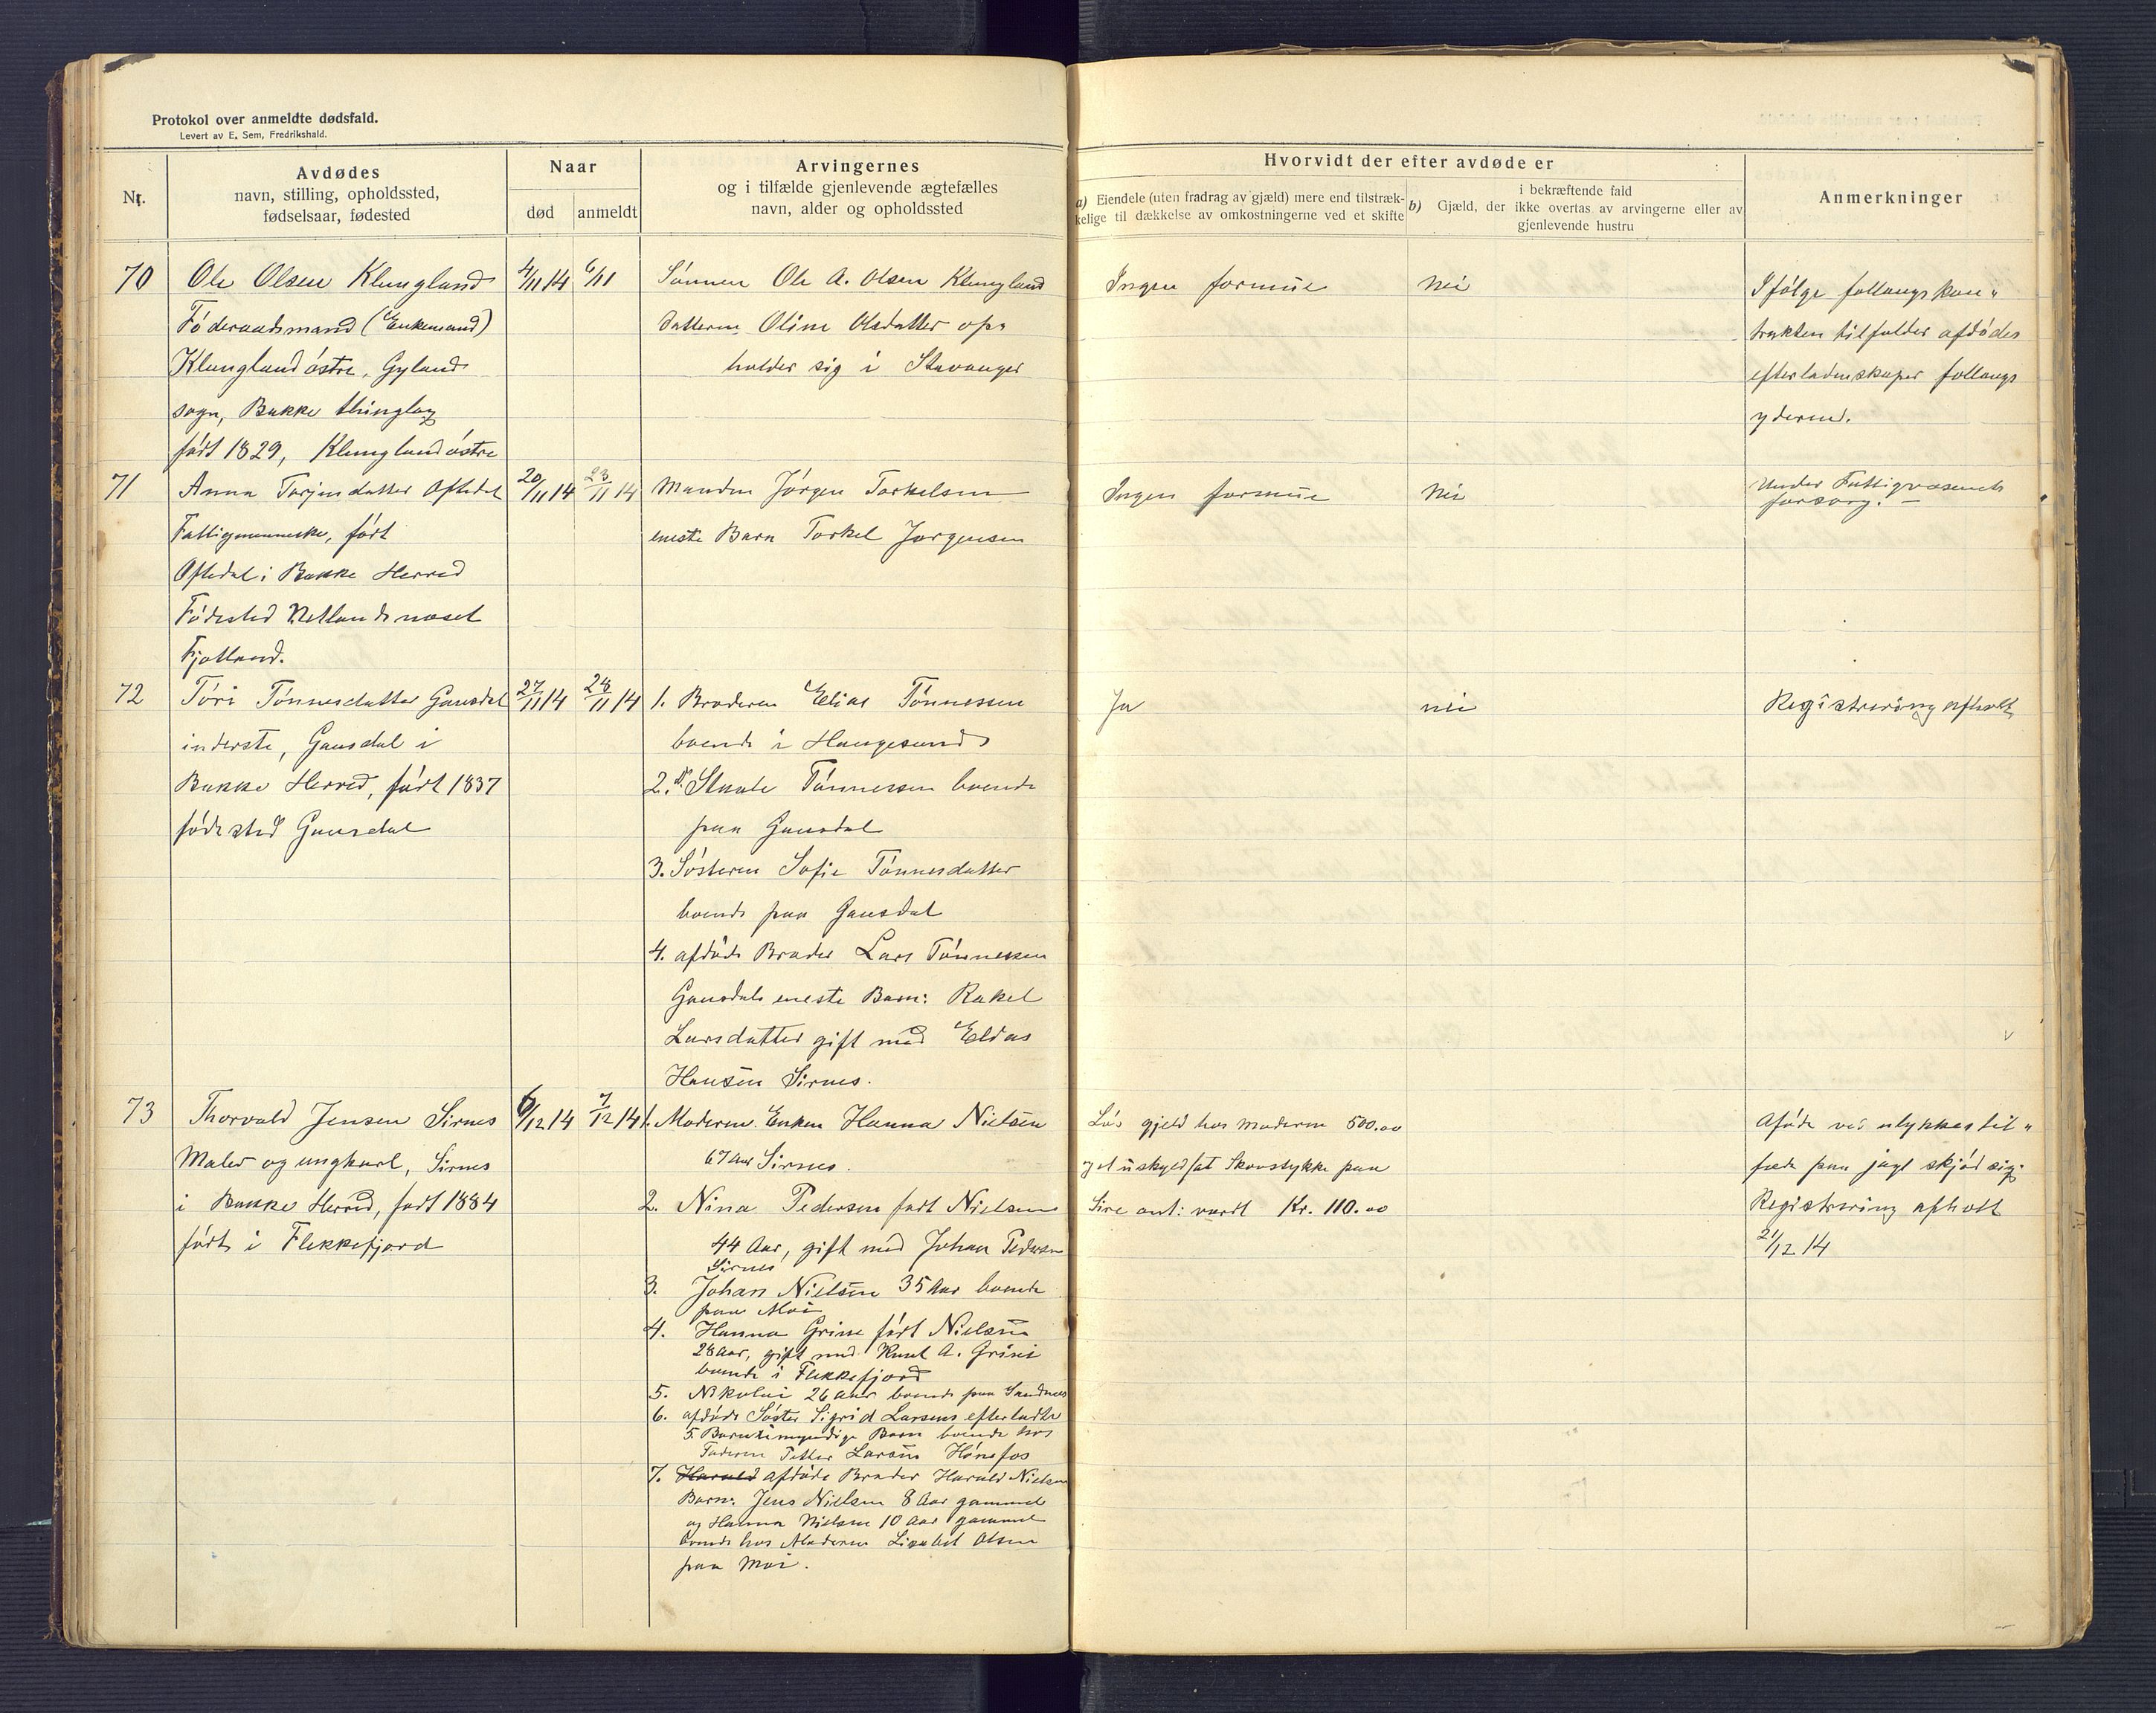 Protokol over anmeldte dødsfald.
Levert av E. Sem, Fredrikshald.
Nr.
Avdødes
navn, stilling, opholdssted,
fødselsaar, fødested
Naar
død
anmeldt
Arvingernes
og i tilfælde gjenlevende ægtefælles
navn, alder og opholdssted
Hvorvidt der efter avdøde er
a) Eiendele (uten fradrag av gjæld) mere end tilstræk-
kelige til dækkelse av omkostningerne ved et skifte
i bekræftende fald
b) Gjæld, der ikke overtas av arvingerne eller av
gjenlevende hustru
Anmerkninger
70
Ole Olsen Klungland
Føderaadsmand (Enkemand)
Klungland østre, Gylands
sogn, Bakke thinglag
født 1829, Klungland østre
4/11 14
6/11
Sønnen Ole A. Olsen Klungland
Datteren Oline Olsdatter op=
holder sig i Stavanger
Ingen formue
Nei
Ifølge follaugskon"
trakten tilfalder afdødes
efterladenskaper follaugs
yderen.
71
Anna Torjesdatter Oftedal
Fattigmenneske, født
Oftedal i Bakke Herred
Fødested Netlandsnæset
Fjotland.
20/11 14
23/11 14
Manden Jørgen Torkelsen
eneste Barn Torkel Jørgensen
Ingen formue
Nei
Under Fattigvæsenets
forsorg. —
72
Tøri Tønnesdatter Gausdal
inderste, Gausdal i
Bakke Herred, født 1837
fødested Gausdal
27/11 14
28/11 14
1. Broderen Elias Tønnessen
boende i Haugesund
2. Do. Staale Tønnessen boende
paa Gausdal
3. Søsteren Sofie Tønnesdatter
boende paa Gausdal
4. afdøde Broder Lars Tønnessen
Gausdals eneste Barn: Rakel
Larsdatter gift med Eldas
Hansen Sirnes.
Ja
nei
Registrering afholt
73
Thorvald Jensen Sirnes
Maler og ungkarl, Sirnes
i Bakke Herred, født 1884
født i Flekkefjord
6/12 14
7/12 14
1. Moderen Enken Hanna Nielsen
67 Aar Sirnes.
2. Nina Pedersen født Nielsen
44 Aar, gift med Johan Pedersen
Sirnes
3. Johan Nielsen 35 Aar boende
paa Moi
4. Hanna Grini født Nielsen
28 Aar, gift med Knut A. Grini
boende i Flekkefjord
5. Nikolai 26 Aar boende paa Sandnes
6. afdøde Søster Sigrid Larsens efterladte
5 Børn umyndige Børn boende hos
Faderen Petter Larsen Hønefos
7. Harald afdøde Broder Harald Nielsen
Børn: Jens Nielsen 8 Aar gammel
og Hanna Nielsen 10 Aar gammel
boende hos Moderen Lisabet Olsen
paa Moi.
Løs gjeld hos moderen 500.00
og et uskyldsat Skovstykke paa
Sire ant: værdt Kr. 110.00
Aføde ved ulykkestil"
fælde paa jagt skjød sig.
Registrering afholt
21/12 14